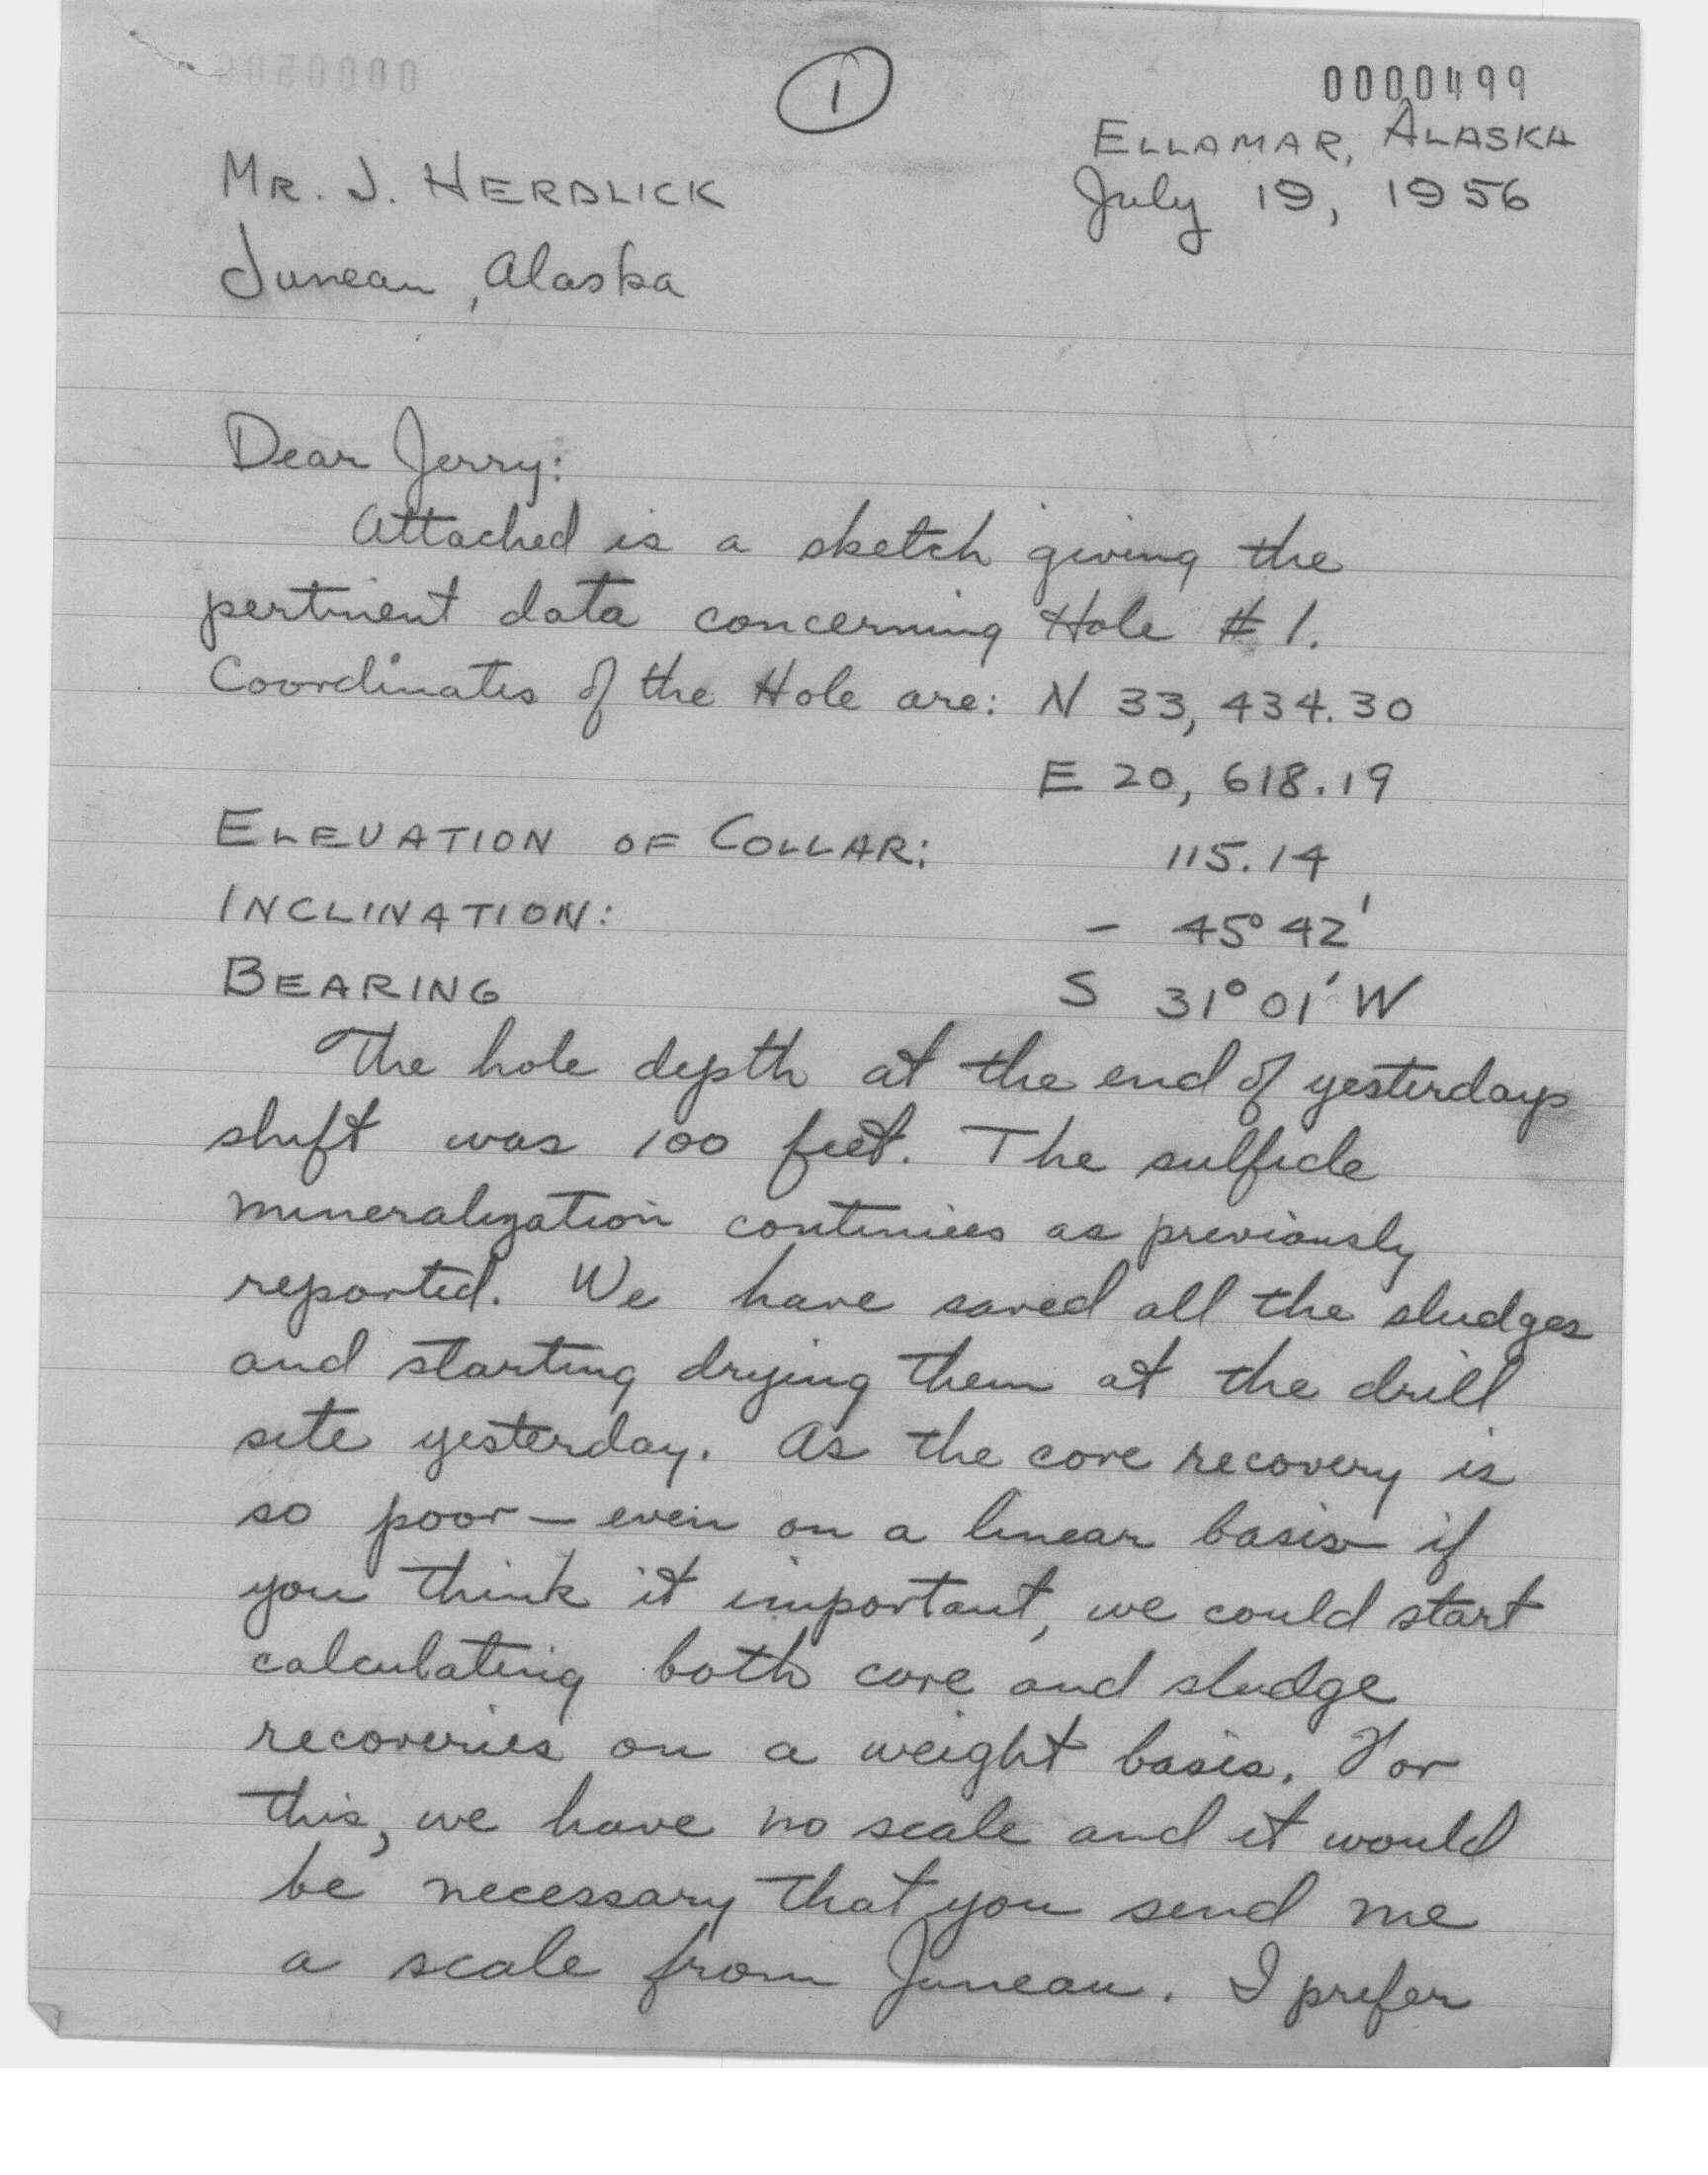 1
0000499
ELLAMAR, ALASKA
MR. J. HERDLICK
July 19, 1956
Juneau, Alaska
Dear Jerry:
Attached is a sketch giving the
pertinent data concerning Hole #1.
Coordinates of the Hole are: N 33,434.30
E 20,618.19
ELEVATION OF COLLAR: 115.14
INCLINATION: - 45° 42'
BEARING S 31° 01' W
The hole depth at the end of yesterdays
shift was 100 feet. The sulfide
mineralization continues as previously
reported. We have saved all the sludges
and starting drying them at the drill
site yesterday. As the core recovery is
so poor - even on a linear basis - if
you think it important, we could start
calculating both core and sludge
recoveries on a weight basis. For
this, we have no scale and it would
be necessary that you send me
a scale from Juneau. I prefer